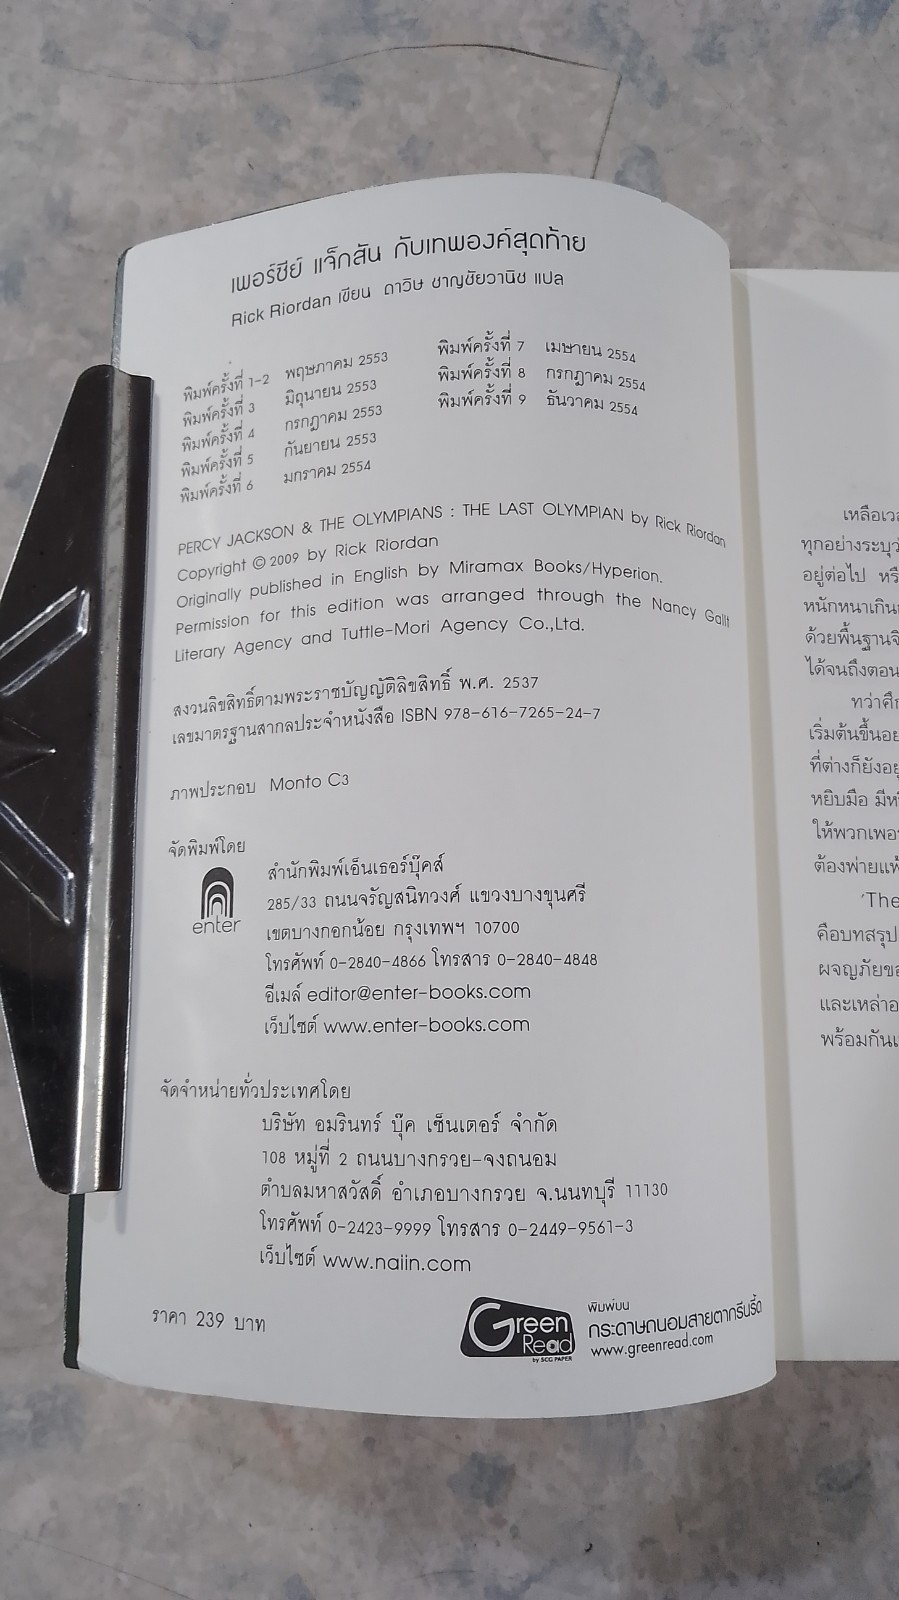 เพอร์ซีย์ แจ็กสัน กับเทพองค์สุดท้าย
Rick Riordan เขียน ดาวิษ ชาญชัยวานิช แปล
พิมพ์ครั้งที่ 1-2 พฤษภาคม 2553
พิมพ์ครั้งที่ 3 มิถุนายน 2553
พิมพ์ครั้งที่ 4 กรกฎาคม 2553
พิมพ์ครั้งที่ 5 กันยายน 2553
พิมพ์ครั้งที่ 6 มกราคม 2554
พิมพ์ครั้งที่ 7 เมษายน 2554
พิมพ์ครั้งที่ 8 กรกฎาคม 2554
พิมพ์ครั้งที่ 9 ธันวาคม 2554
PERCY JACKSON & THE OLYMPIANS : THE LAST OLYMPIAN by Rick Riordan
Copyright © 2009 by Rick Riordan
Originally published in English by Miramax Books/Hyperion.
Permission for this edition was arranged through the Nancy Gallt
Literary Agency and Tuttle-Mori Agency Co.,Ltd.
สงวนลิขสิทธิ์ตามพระราชบัญญัติลิขสิทธิ์ พ.ศ. 2537
เลขมาตรฐานสากลประจำหนังสือ ISBN 978-616-7265-24-7
ภาพประกอบ Monto C3
จัดพิมพ์โดย
enter
สำนักพิมพ์เอ็นเธอร์บุ๊คส์
285/33 ถนนจรัญสนิทวงศ์ แขวงบางขุนศรี
เขตบางกอกน้อย กรุงเทพฯ 10700
โทรศัพท์ 0-2840-4866 โทรสาร 0-2840-4848
อีเมล์ editor@enter-books.com
เว็บไซต์ www.enter-books.com
จัดจำหน่ายทั่วประเทศโดย
บริษัท อมรินทร์ บุ๊ค เซ็นเตอร์ จำกัด
108 หมู่ที่ 2 ถนนบางกรวย-จงถนอม
ตำบลมหาสวัสดิ์ อำเภอบางกรวย จ.นนทบุรี 11130
โทรศัพท์ 0-2423-9999 โทรสาร 0-2449-9561-3
เว็บไซต์ www.naiin.com
ราคา 239 บาท
Green Read
by SCG PAPER
พิมพ์บน
กระดาษถนอมสายตากรีนรี้ด
www.greenread.com
ทุกอย่างระบุ
อยู่ต่อไป
หนักหนาเกิน
ด้วยพื้นฐาน
ได้จนถึงตอน
ทว่าศึก
เริ่มต้นขึ้น
ที่ต่างก็ยัง
หยิบมือ
ให้พวกเพอร์
ต้องพ่ายแพ้
'The
คือบทสรุป
ผจญภัย
และเหล่า
พร้อมกัน